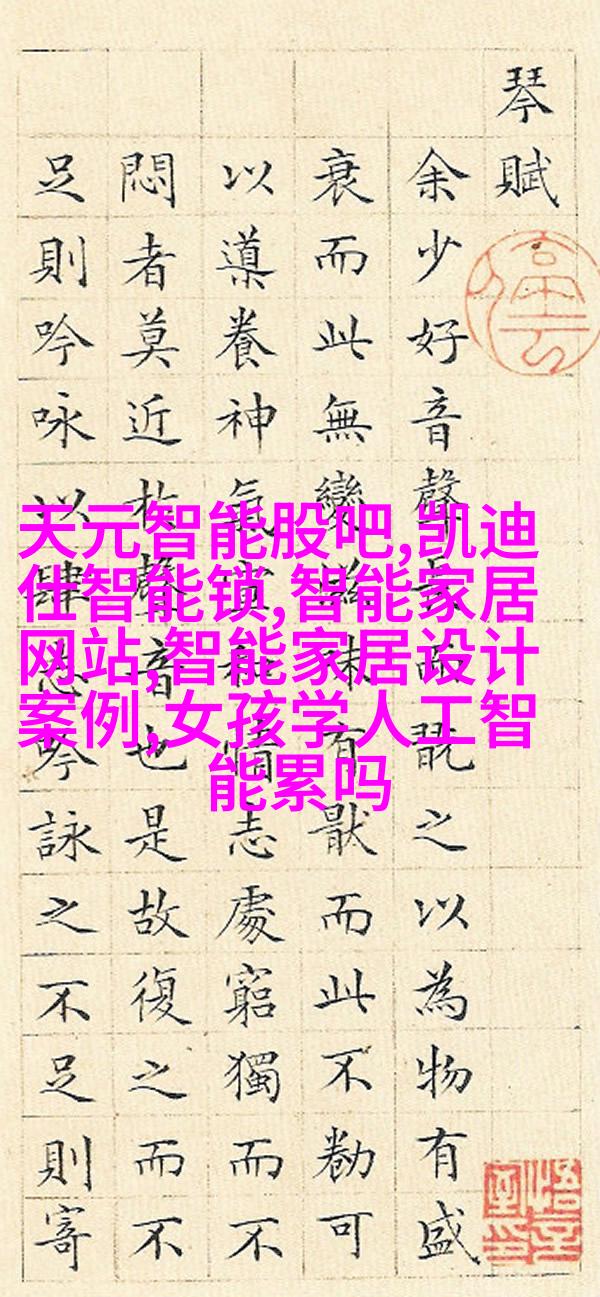 琴賦
余少好音聲長而翫之以為物有盛
衰而此無變滋味有猒而此不勌可
以導養神氣宣和情志處窮獨而不
悶者莫近於聲音也是故復之而不
足則吟咏以肆志吟詠之不足則寄
天元智能股吧,凯迪
仕智能锁,智能家居
网站,智能家居设计
案例,女孩学人工智
能累吗